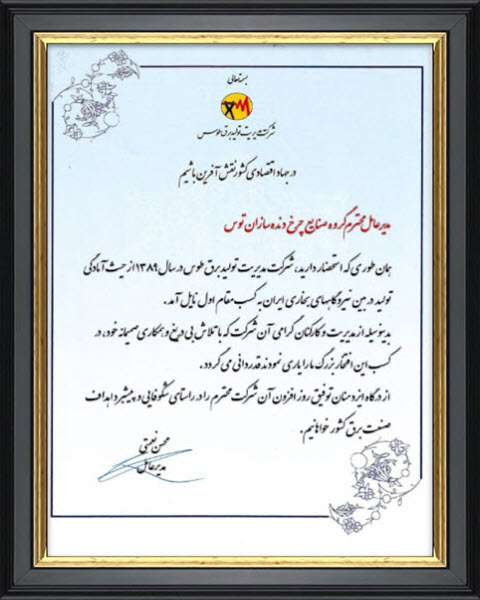 بسمه‌تعالی
شرکت مدیریت تولید برق طوس
در جهاد اقتصادی کشور نقش آفرین باشیم
مدیرعامل محترم گروه صنایع چرخ دنده سازان توس
همان طوری که استحضار دارید، شرکت مدیریت تولید برق طوس در سال ۱۳۸۹ از حیث آمادگی
تولید در بین نیروگاههای بخاری ایران به کسب مقام اول نایل آمد.
بدینوسیله از مدیریت و کارکنان گرامی آن شرکت که با تلاش بی دریغ و همکاری صمیمانه خود، در
کسب این افتخار بزرگ ما را یاری نمودند قدردانی می گردد.
از درگاه ایزد منان توفیق روز افزون آن شرکت محترم را در راستای شکوفایی و پیشبرد اهداف
صنعت برق کشور خواهانیم.
محسن نعمتی
مدیرعامل